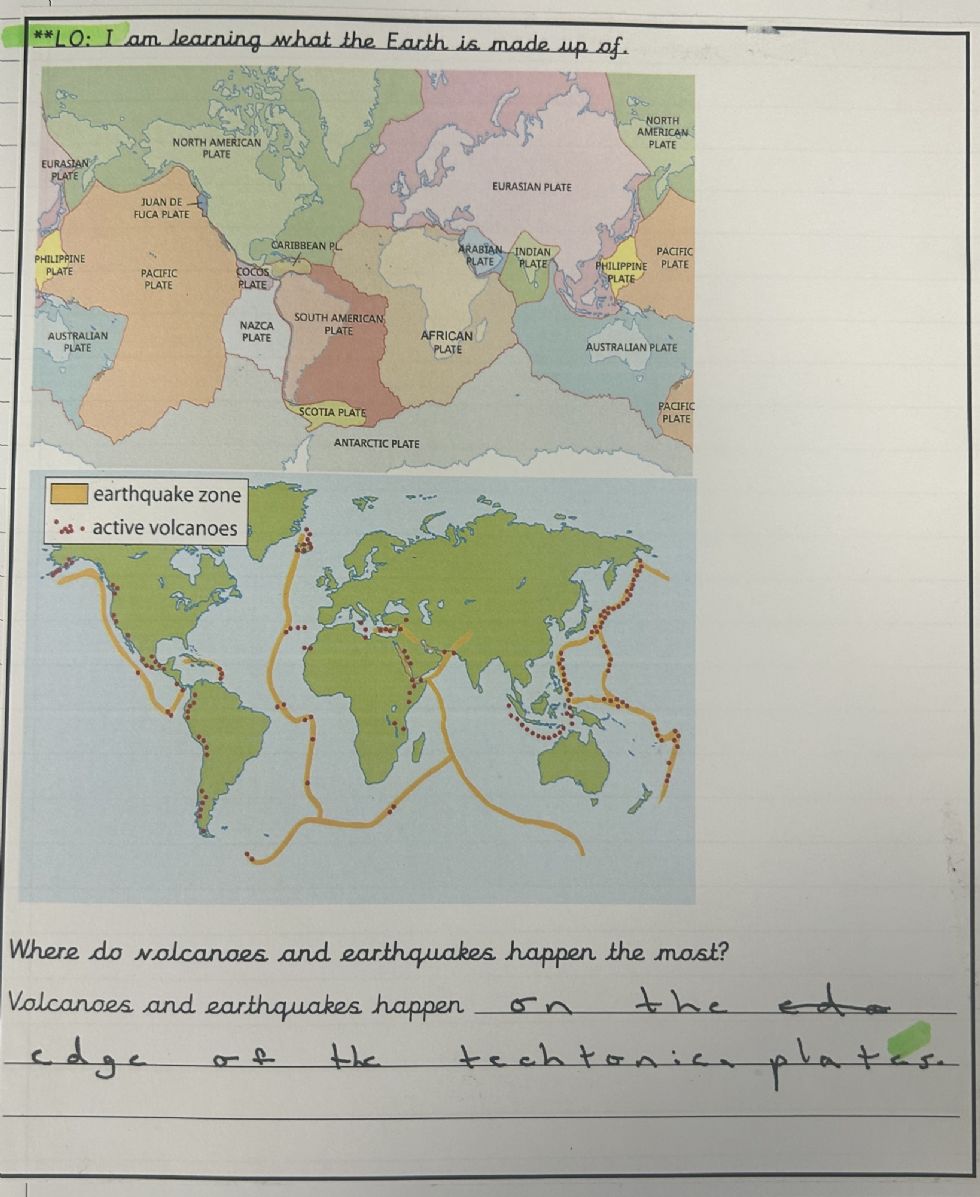 **LO: I am learning what the Earth is made up of.
NORTH AMERICAN
PLATE
NORTH
AMERICAN
PLATE
EURASIAN
PLATE
EURASIAN PLATE
JUAN DE
FUCA PLATE
CARIBBEAN PL.
ARABIAN
PLATE
INDIAN
PLATE
PHILIPPINE
PLATE
PACIFIC
PLATE
COCOS
PLATE
PHILIPPINE
PLATE
PACIFIC
PLATE
AUSTRALIAN
PLATE
NAZCA
PLATE
SOUTH AMERICAN
PLATE
AFRICAN
PLATE
AUSTRALIAN PLATE
SCOTIA PLATE
PACIFIC
PLATE
ANTARCTIC PLATE
earthquake zone
active volcanoes
Where do volcanoes and earthquakes happen the most?
Volcanoes and earthquakes happen on the
edge of the techtonic plates.